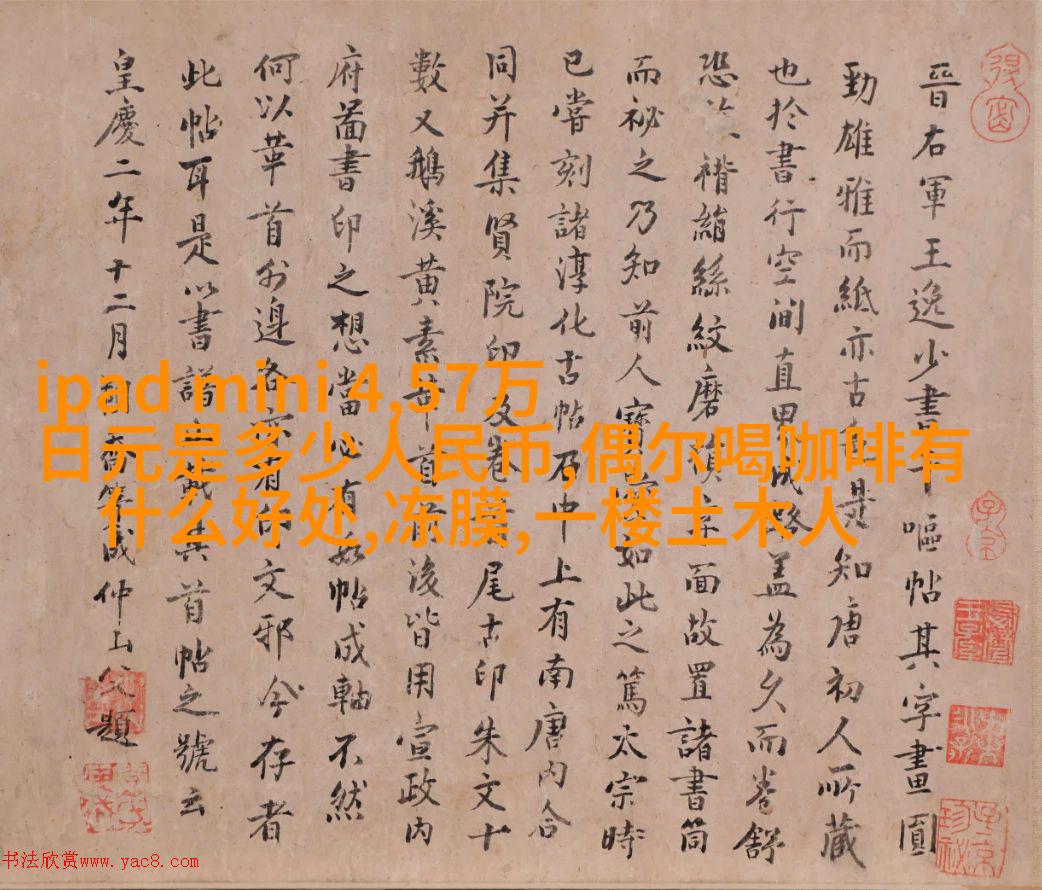 晉右軍王逸少書嘔帖其字畫圓
勁雄雅而紙亦古是知唐初人所藏
也於書行空間直界成蓋為久而卷舒
恐褙絹絲紋磨損字面故置諸書筒
而祕之乃知前人寶如此之篤太宗時
已嘗刻諸淳化古帖乃中上有南唐內合
同并集賢院印及卷尾古印朱文十
數又鵝溪黃素首前後皆用宣政內
府啚書印之想當必有如帖成軸不然
何以華首外邊各有印文邪今存者
此帖耳是以書諸其首帖之號云
皇慶二年十二月喬簣成仲山父題
ipad mini 4,57万
日元是多少人民币,偶尔喝咖啡有
什么好处,冻膜,一楼土木人
书法欣赏www.yac8.com